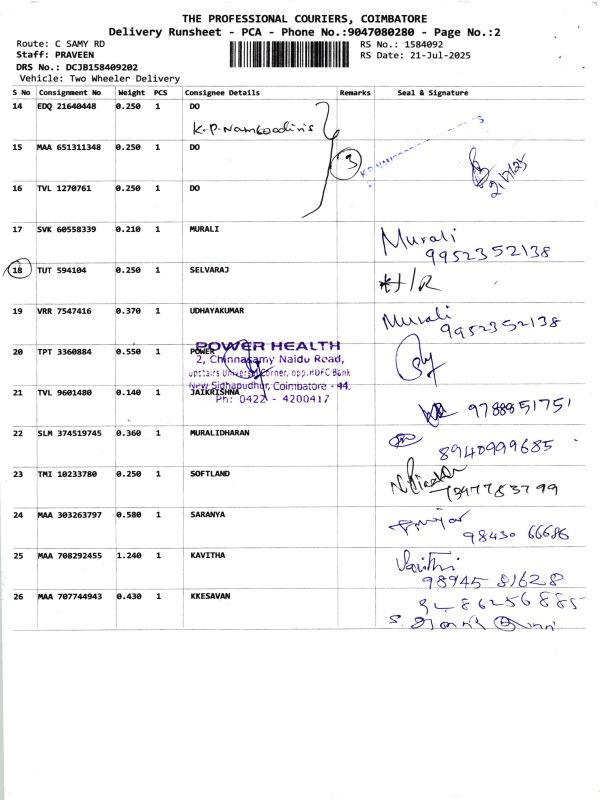 THE PROFESSIONAL COURIERS, COIMBATORE
Delivery Runsheet - PCA - Phone No.:9047080280 - Page No.:2
Route: C SAMY RD
Staff: PRAVEEN
DRS No.: DCJB158409202
Vehicle: Two Wheeler Delivery
RS No.: 1584092
RS Date: 21-Jul-2025
S No Consignment No Weight PCS Consignee Details Remarks Seal & Signature
14 EDQ 21640448 0.250 1 DO
K.P. Namboodiri's
15 MAA 651311348 0.250 1 DO
3
21/7/25
16 TVL 1270761 0.250 1 DO
17 SVK 60558339 0.210 1 MURALI Murali
9952352138
18 TUT 594104 0.250 1 SELVARAJ H/R
19 VRR 7547416 0.370 1 UDHAYAKUMAR Murali
9952352138
20 TPT 3360884 0.550 1 POWER
POWER HEALTH
2, Chinnasamy Naidu Road,
upstairs Universal Corner, opp. HDFC Bank
New Sidhapudhur, Coimbatore - 44.
Ph: 0422 - 4200417
21 TVL 9601480 0.140 1 JAIKRISHNA 9788851751
22 SLM 374519745 0.360 1 MURALIDHARAN 8940999685
23 TMI 10233780 0.250 1 SOFTLAND
24 MAA 303263797 0.580 1 SARANYA 98430 66686
25 MAA 708292455 1.240 1 KAVITHA
98945 81628
26 MAA 707744943 0.430 1 KKESAVAN